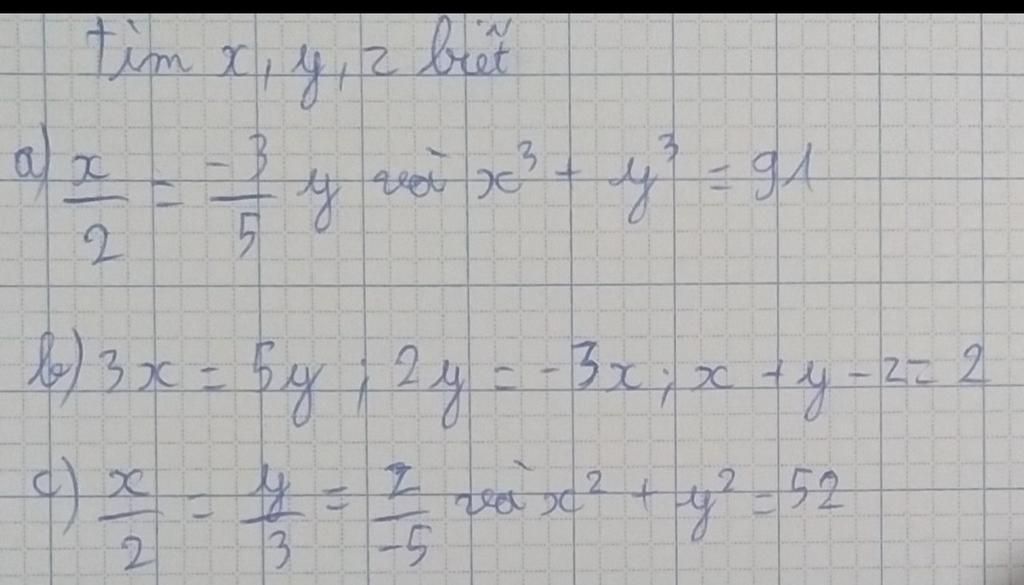 tìm x, y, z biết
a) x/2 = -3/5 y và x³ + y³ = 91
b) 3x = 5y ; 2y = -3x ; x + y - z = 2
c) x/2 = y/3 = z/-5 và x² + y² = 52